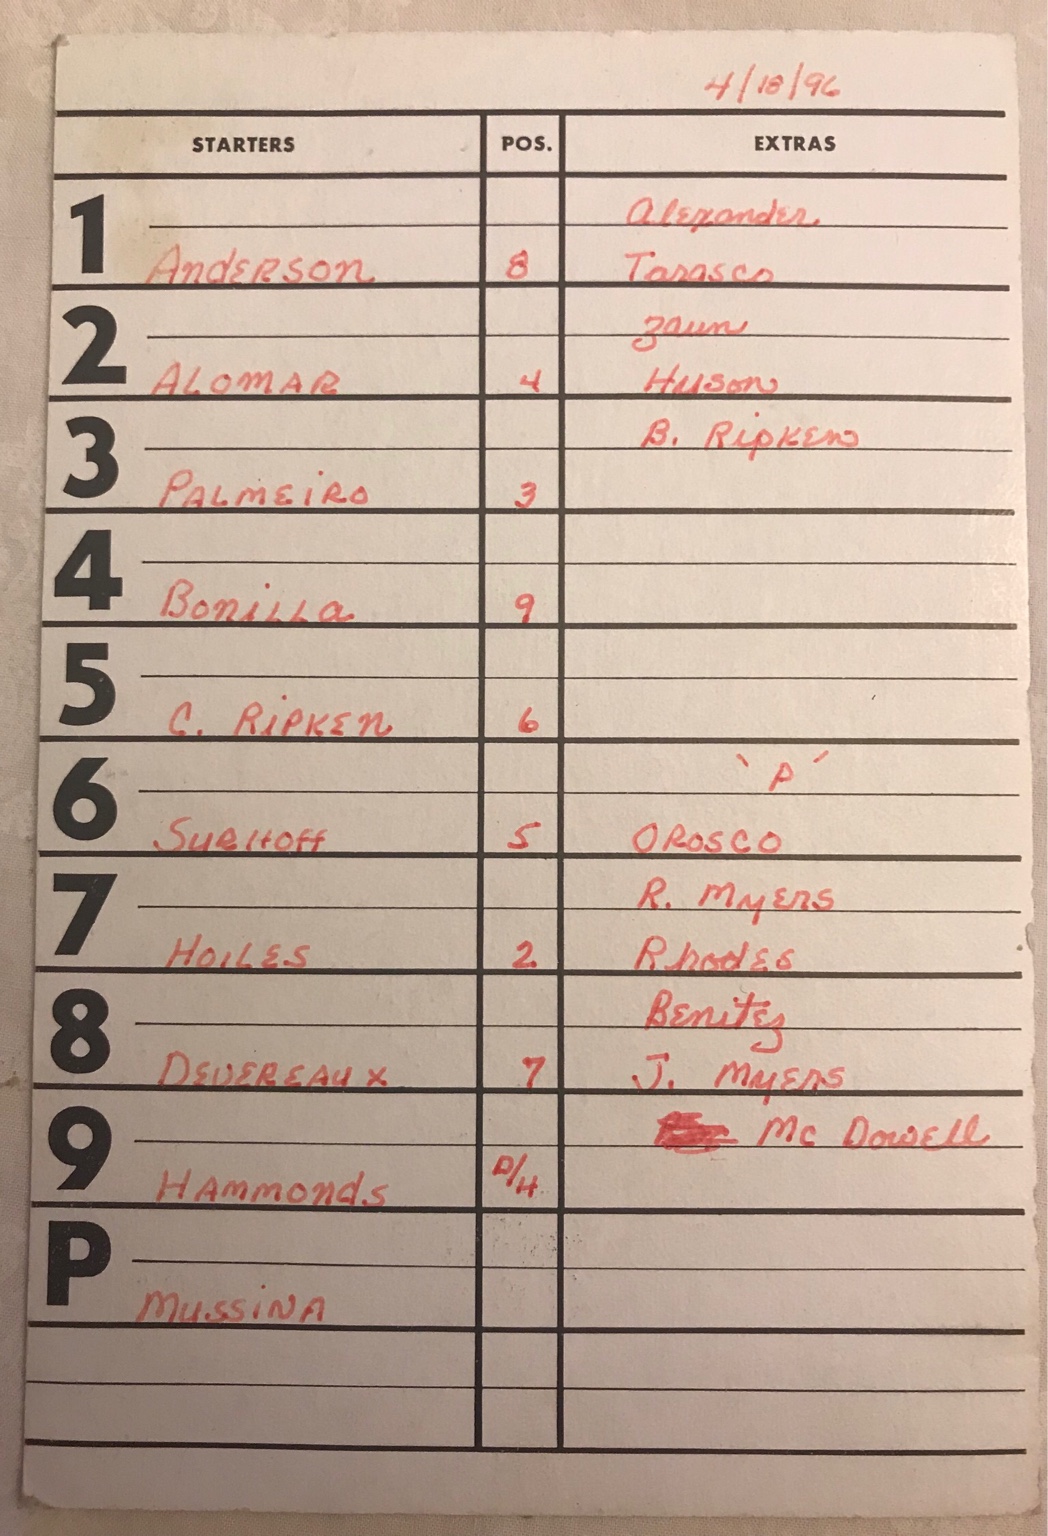 4/18/96
STARTERS POS. EXTRAS
Alexander
1 Anderson 8 Tarasco
Zaun
2 ALOMAR 4 Huson
B. Ripken
3 PALMEIRO 3
4 Bonilla 9
5 C. RIPKEN 6
'P'
6 SURHOFF 5 OROSCO
R. Myers
7 HOILES 2 Rhodes
Benitez
8 DEVEREAUX 7 J. Myers
Mc Dowell
9 HAMMONDS D/H
P MUSSINA